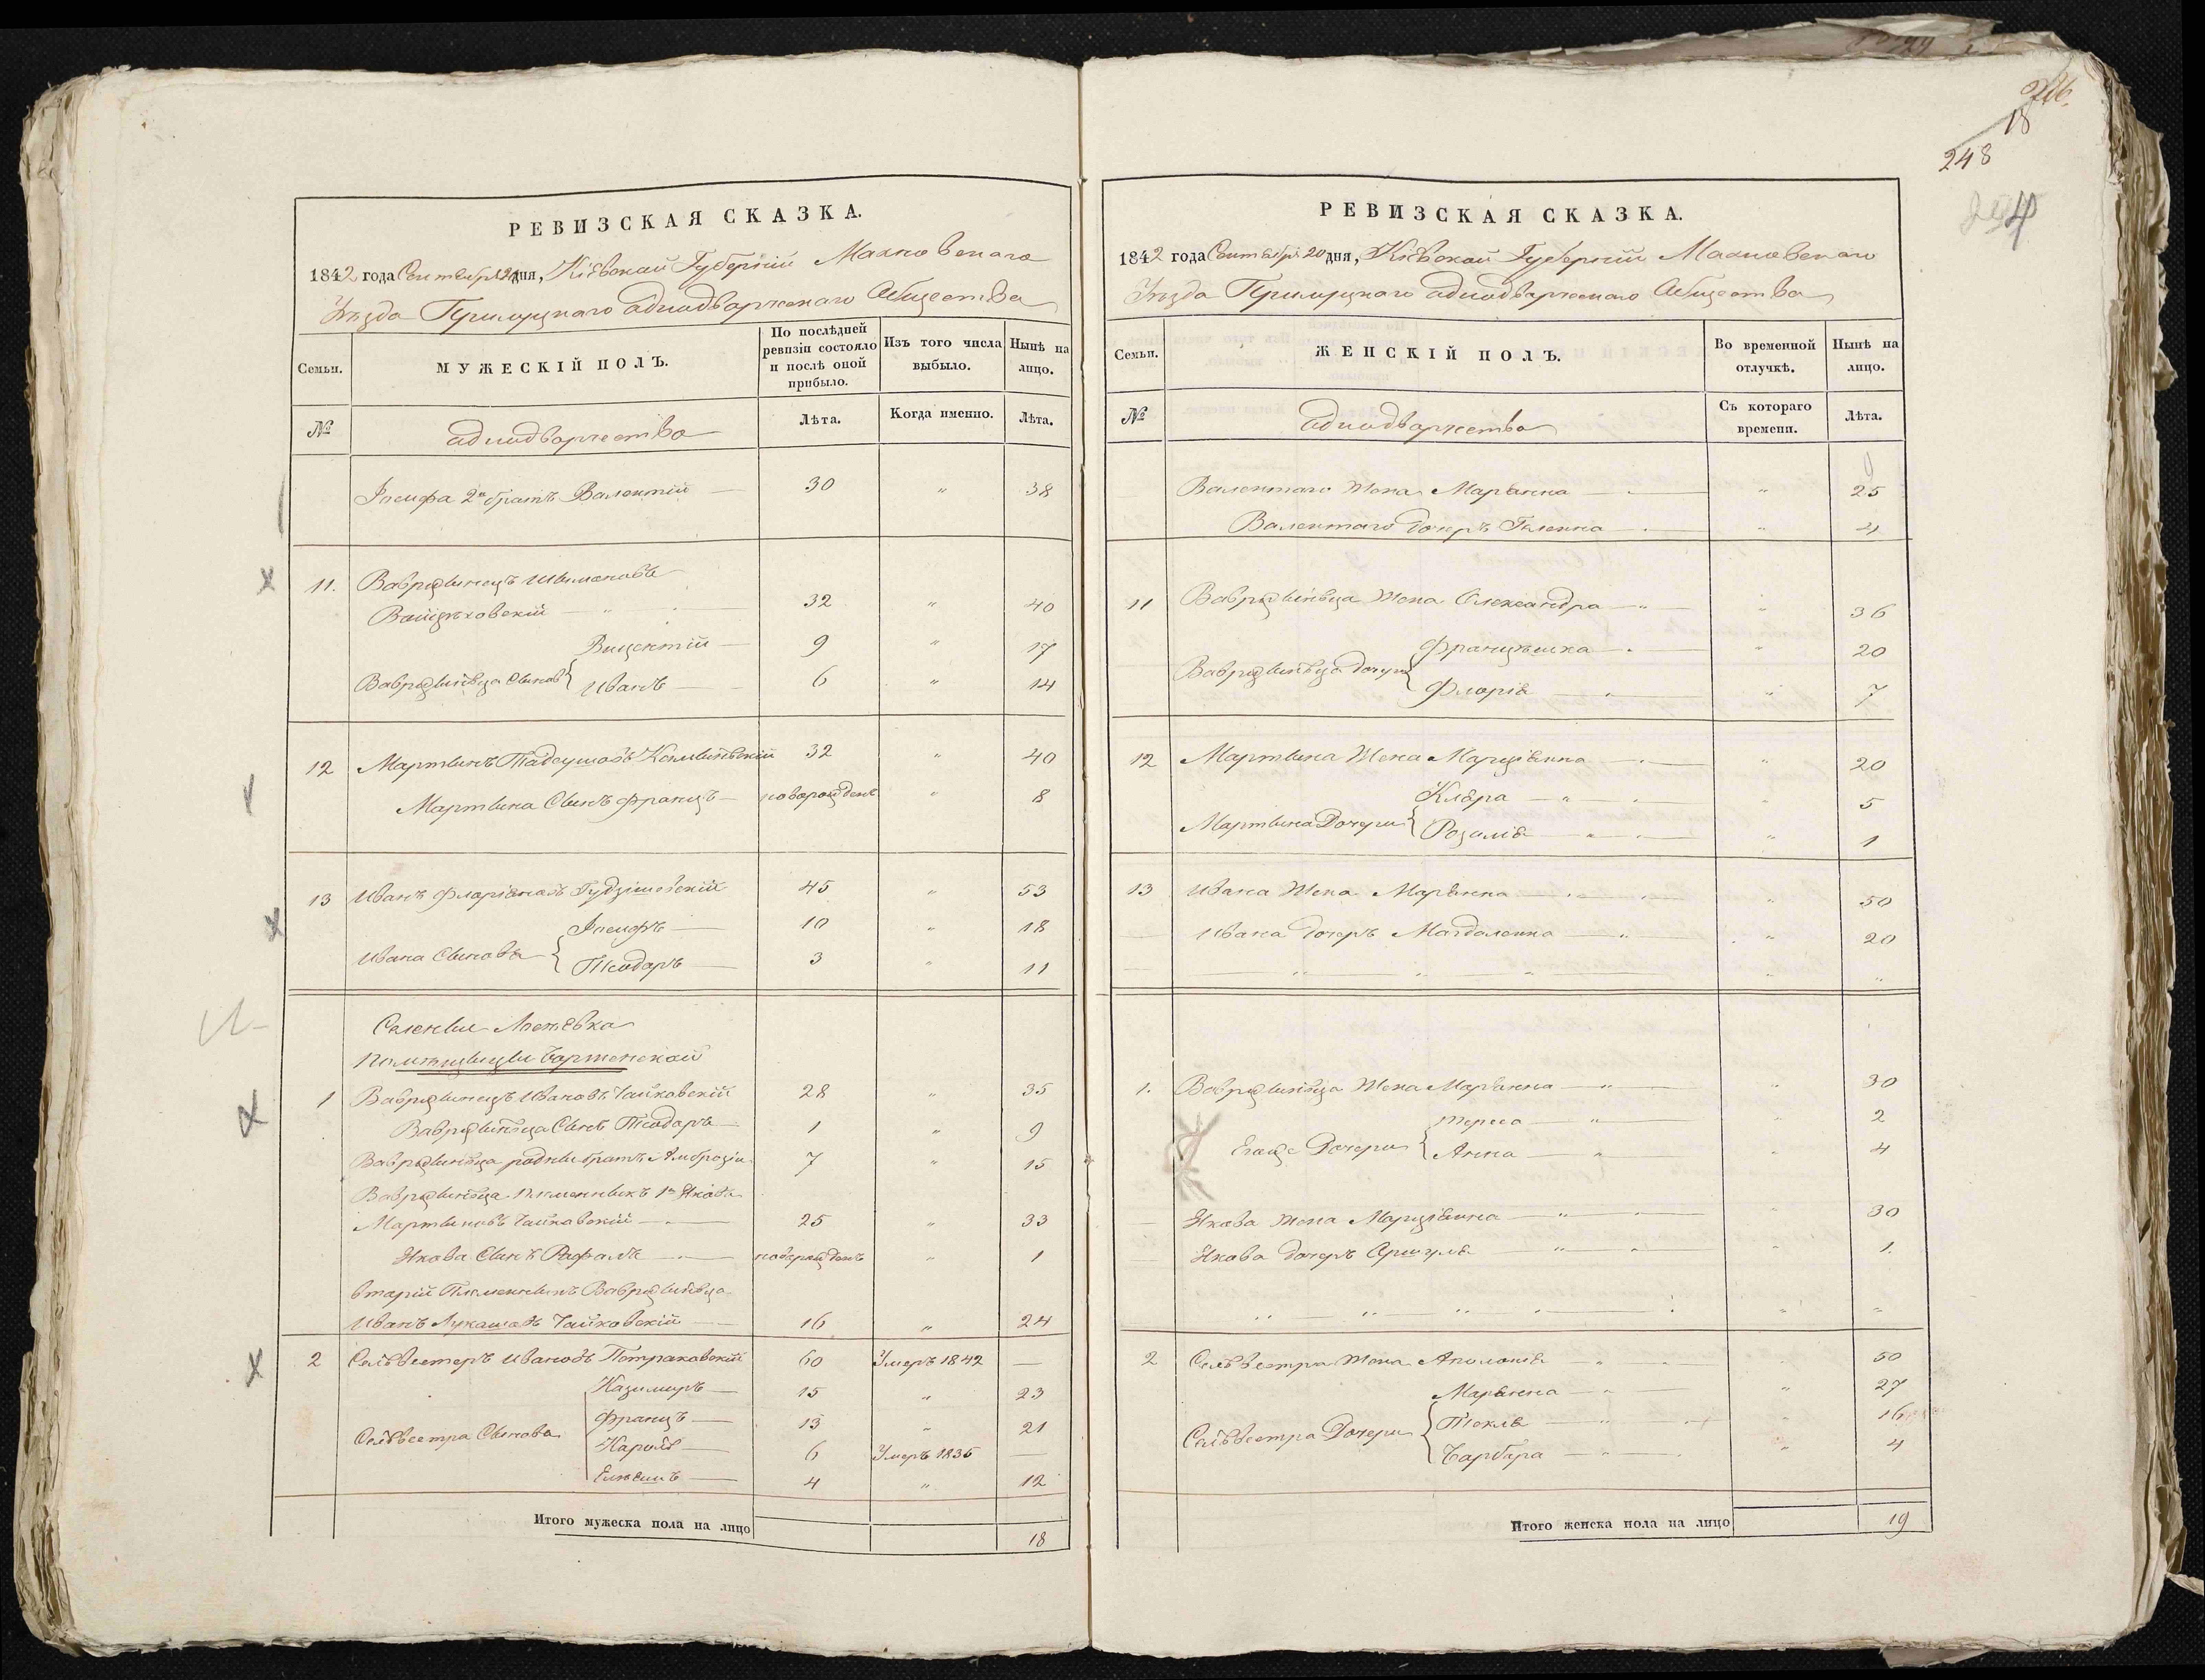 246.
18
248
РЕВИЗСКАЯ СКАЗКА.
1842 года Сентября 20 дня, Кіевской Губерніи Махновскаго
Уѣзда Приlуцкаго однодворческаго Общества
Семьи.
МУЖЕСКІЙ ПОЛЪ.
По послѣдней ревизіи состояло и послѣ оной прибыло.
Изъ того числа выбыло.
Нынѣ на лицо.
№
однодворчества
Лѣта.
Когда именно.
Лѣта.
Іосифа 2й братъ Валентій 30 " 38
11. Вавржинецъ Шимоновъ
Войцѣховскій 32 " 40
Вицентій 9 " 17
Вавржинѣца Сынов Иванъ 6 " 14
12 Мартинъ Тадеушовъ 32 " 40
Мартина Сынъ Францъ новорожденъ " 8
13 Иванъ Флоріановъ Гудзишовскій 45 " 53
Іосифъ 10 " 18
Ивана Сыновья Теодоръ 3 " 11
Селенія
Помѣщицы
1 Вавржинецъ Ивановъ Чайковскій 28 " 35
Вавржинѣца Сынъ Теодоръ 1 " 9
Вавржинѣца родны братъ Амброзіи 7 " 15
Вавржинѣца племенникъ 1й Якова
Мартиновъ Чайковскій 25 " 33
Якова Сынъ Рафалъ новорожденъ " 1
вторій Племенникъ Вавржинѣца
Иванъ Лукашовъ Чайковскій 16 " 24
2 Сильвестеръ Ивановъ Петраковскій 60 Умеръ 1842 —
Казимиръ 15 " 23
Францъ 13 " 21
Сильвестра Сыновья Кароль 6 Умеръ 1836 —
4 " 12
Итого мужеска пола на лицо 18
РЕВИЗСКАЯ СКАЗКА.
1842 года Сентября 20 дня, Кіевской Губерніи Махновскаго
Уѣзда однодворческаго Общества
Семьи.
ЖЕНСКІЙ ПОЛЪ.
Во временной отлучкѣ.
Нынѣ на лицо.
№
однодворчества
Съ котораго времени.
Лѣта.
Валентаго Жена Маріанна " 25
Валентаго Дочеръ Геленна " 4
11 Вавржинѣца Жена Олександра " 36
Францѣшка " 20
Вавржинѣца дочери Флорія " 7
12 Мартина Жена Марціанна " 20
Клара " 5
Мартина Дочери Розалія " 1
13 Ивана Жена Маріанна " 50
Ивана Дочеръ Магдаленна " 20
1. Вавржинѣца Жена Маріанна " 30
Тереса " 2
Егоже Дочери Анна " 4
Якова жена Марціанна " 30
Якова дочеръ Оршуля " 1.
2 Сильвестра Жена Аполонія " 50
Маріанна " 27
Текля " 16
Сильвестра Дочери Барбара " 4
Итого женска пола на лицо 19